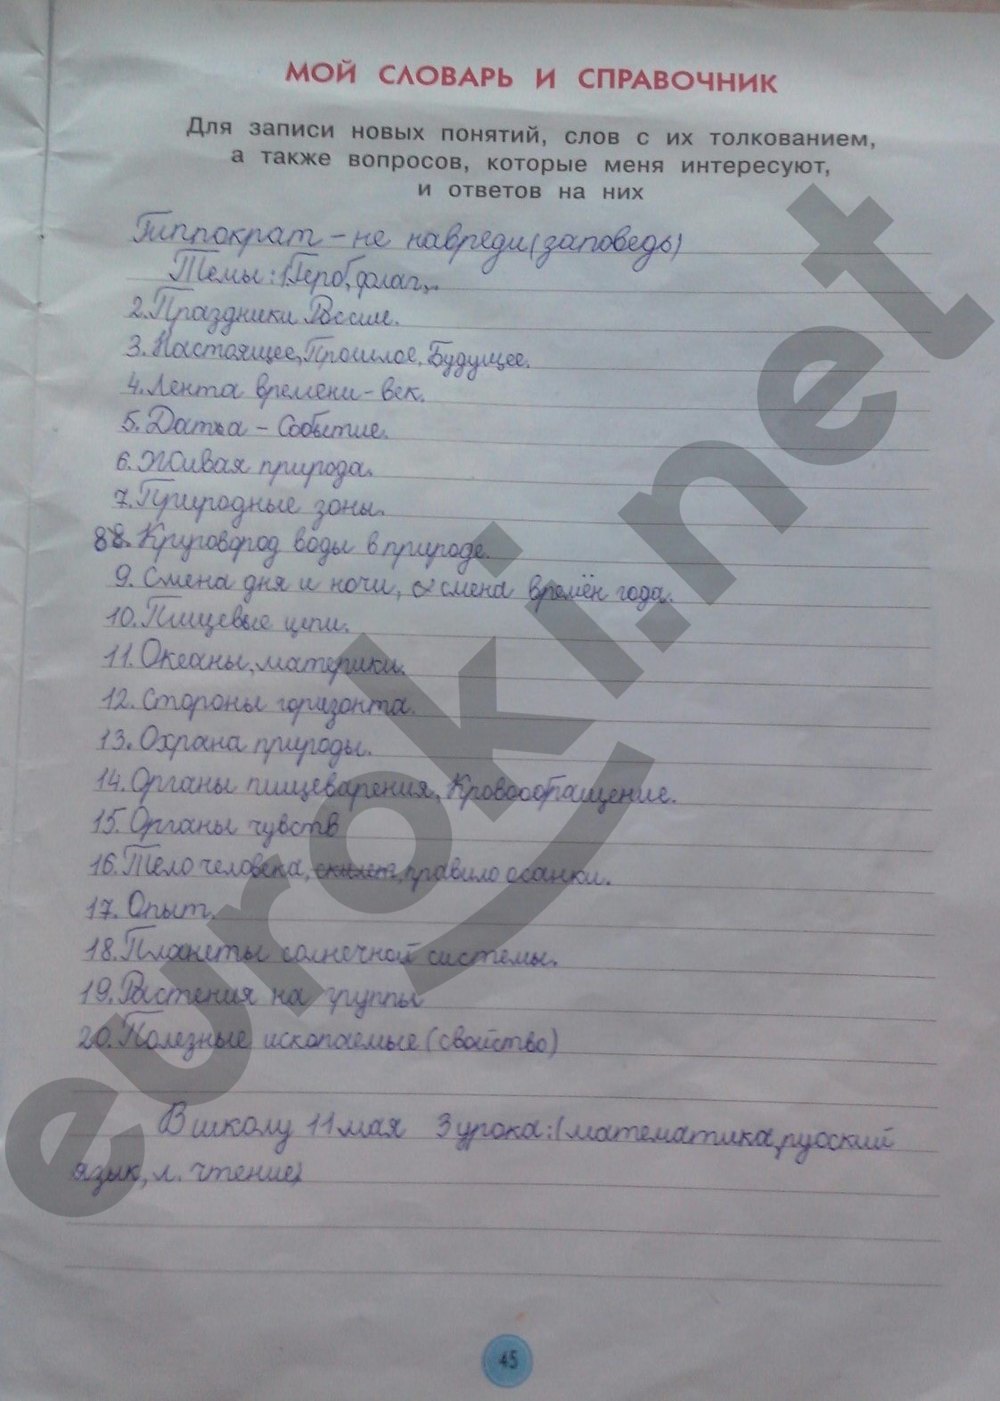 МОЙ СЛОВАРЬ И СПРАВОЧНИК
Для записи новых понятий, слов с их толкованием,
а также вопросов, которые меня интересуют,
и ответов на них
Гиппократ - не навреди (заповедь)
Темы: 1. Герб, флаг,..
2. Праздники России.
3. Настоящее, Прошлое, Будущее.
4. Лента времени - век.
5. Дата - Событие.
6. Живая природа.
7. Природные зоны.
8. Круговород воды в природе.
9. Смена дня и ночи, смена времён года.
10. Пищевые цепи.
11. Океаны, материки.
12. Стороны горизонта.
13. Охрана природы.
14. Органы пищеварения, Кровоообращение.
15. Органы чувств
16. Тело человека, скелет, правило осанки.
17. Опыт.
18. Планеты солнечной системы.
19. Растения на группы
20. Полезные ископаемые (свойство)
В школу 11 мая 3 урока: (математика, русский
язык, л. чтение)
45
euroki.net